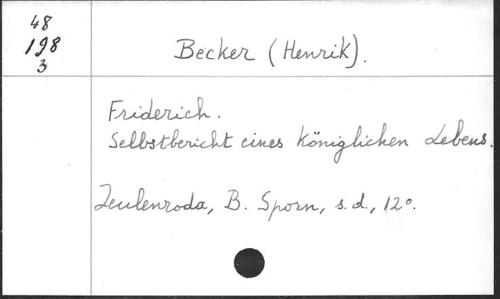 48
198
3
Becker (Henrik).
Friderich.
Selbstbericht eines Königlichen Lebens.
Zeulenroda, B. Sporn, s.d., 12°.